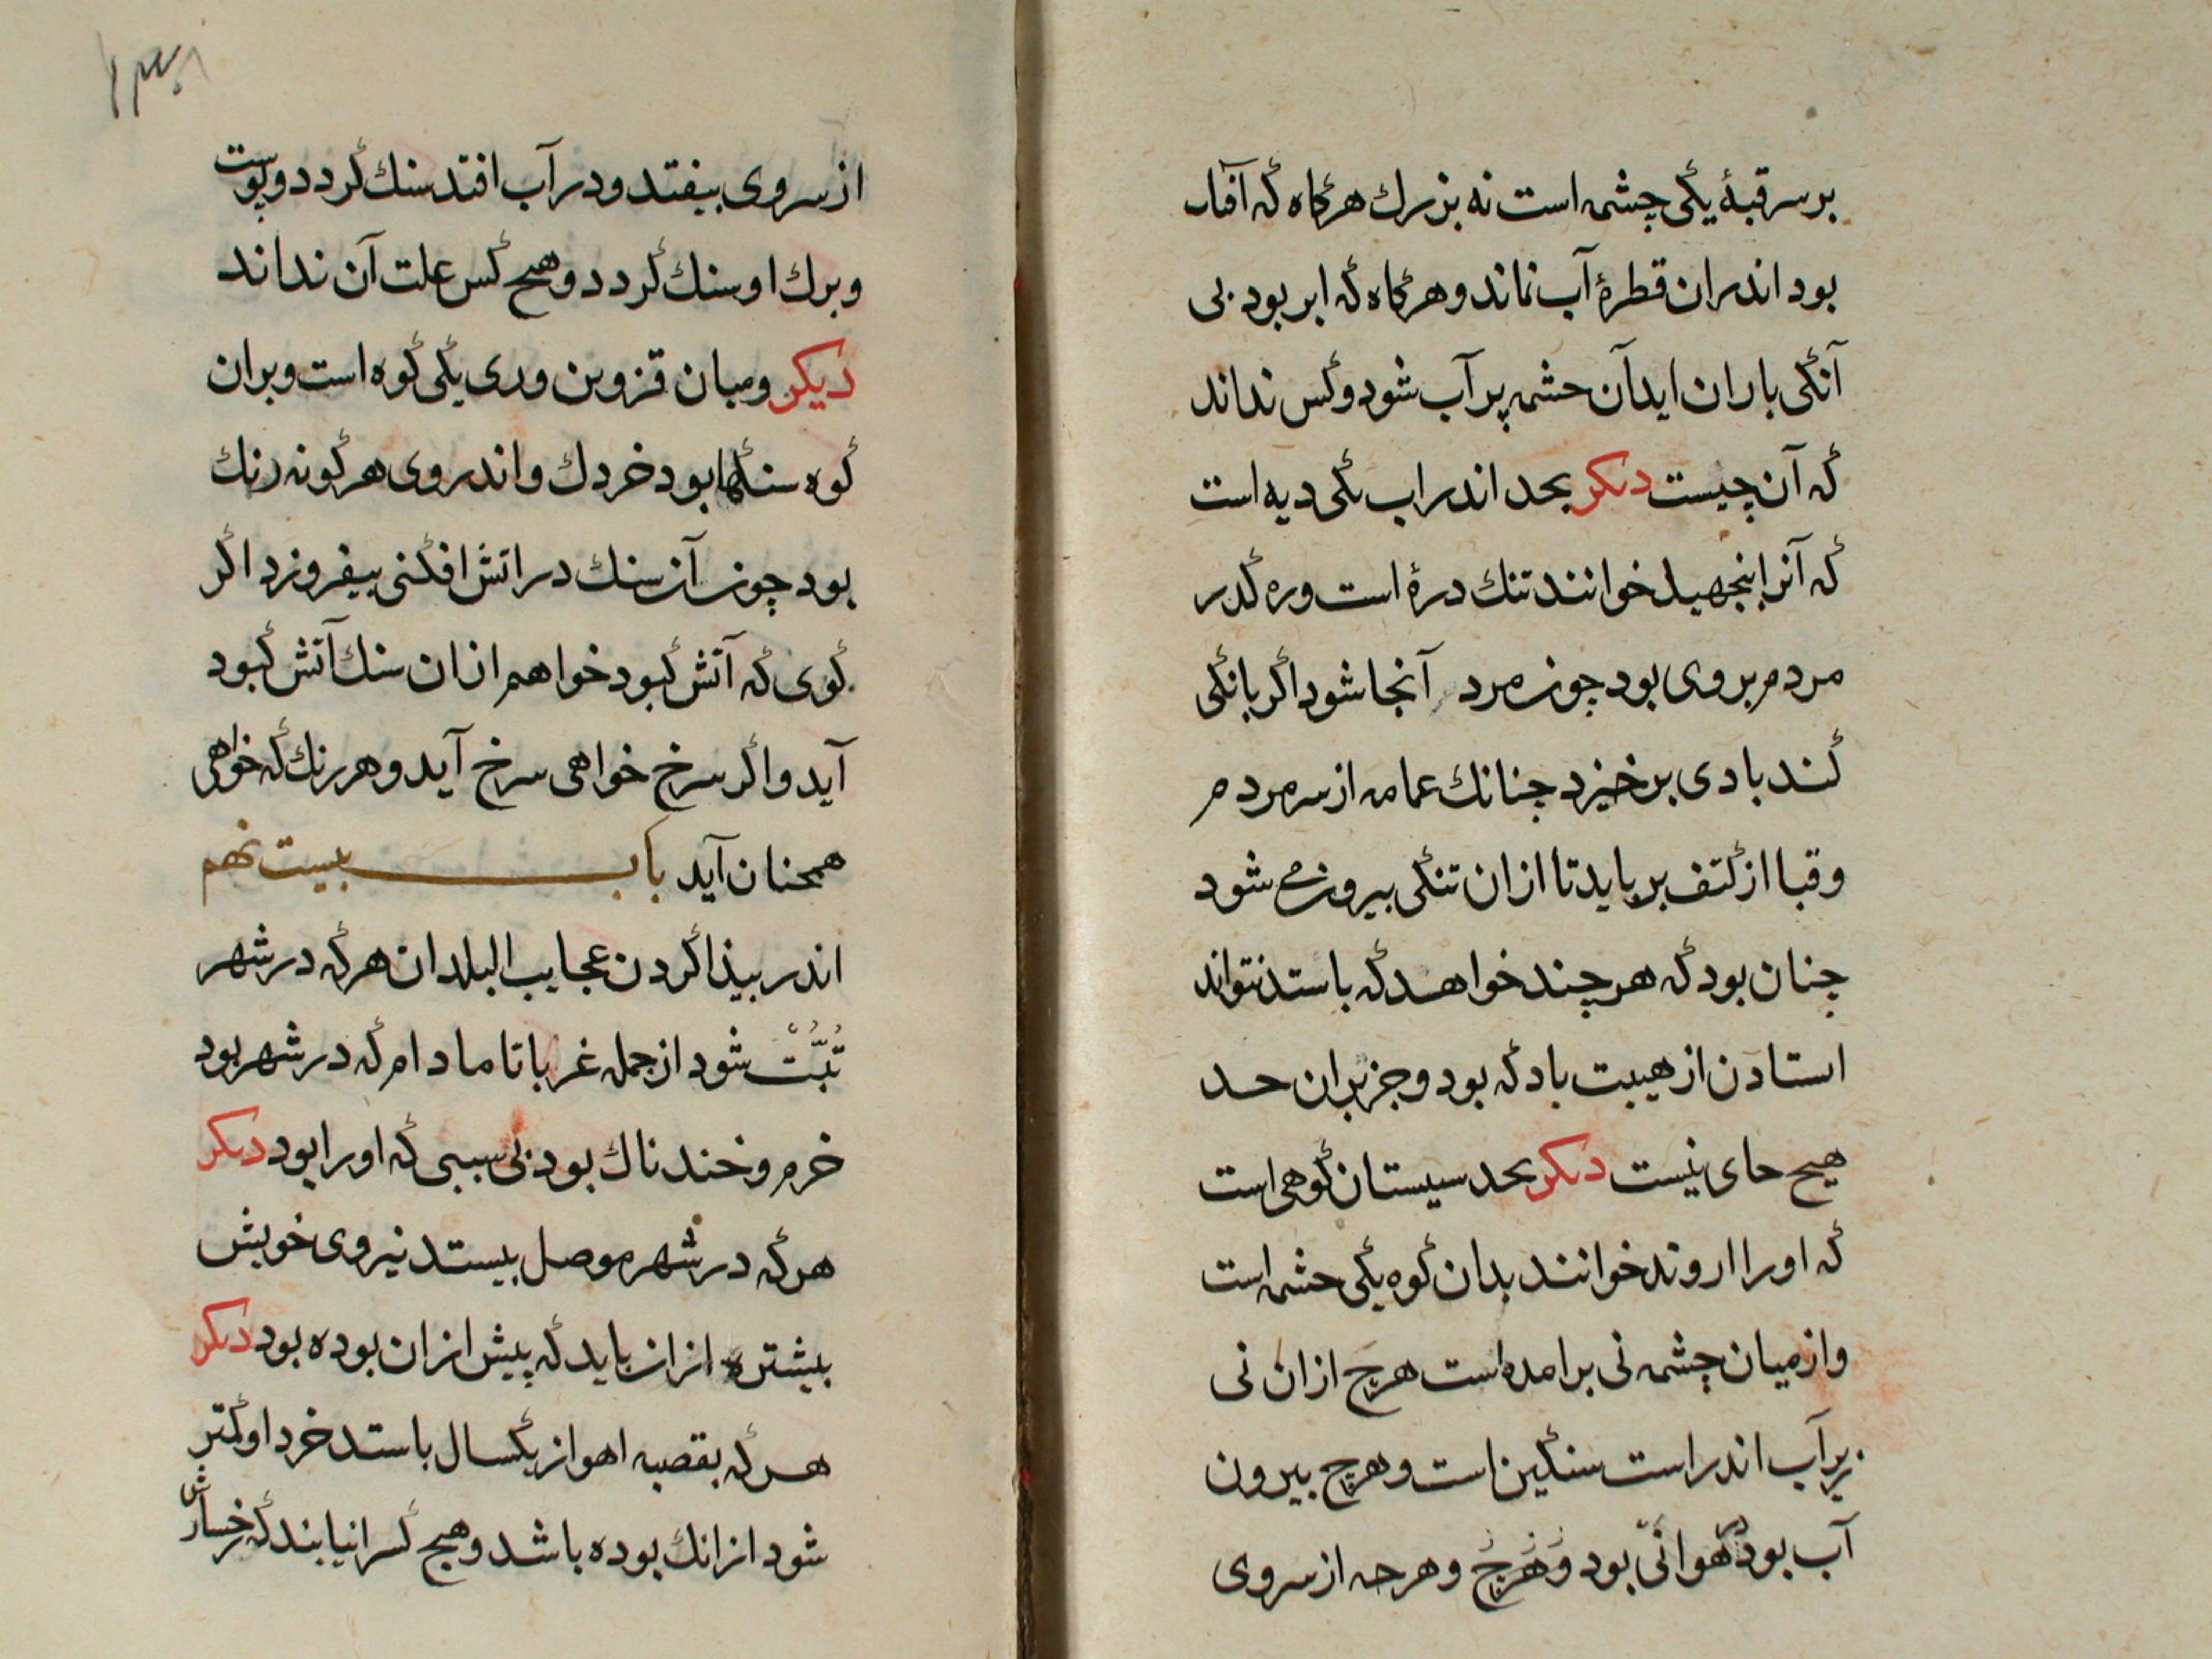 بر سر قبهٔ یکی چشمه است نه بزرك هرگاه که آفتاب
بود اندران قطرهٔ آب نماند و هرگاه که ابر بود بی
آنکی باران اید آن حشمه پر آب شود و کس نداند
که آن چیست دیکر بحد اندراب یکی دیه است
که آنرا خوانند تنك درهٔ است و ره کذر
مردم بروی بود چون مرد آنجا شود اکر بانکی
کند بادی برخیزد چنانك عمامه از سر مردم
و قبا از کتف برباید تا ازان تنکی بیرون شود
چنان بود که هر چند خواهد که باستد نتواند
استادن از هیبت باد که بود و جز بران حد
هیچ حای نیست دیکر بحد سیستان کوهی است
که اورا اروند خوانند بدان کوه یکی حشمه است
و از میان چشمه نی برامده است هرچ ازان نی
زیر آب اندر است سنکین است و هرچ بیرون
آب بود در هوا نی بود و هرچ و هرحه از سر وی
از سر وی بیفتد و در آب افتد سنك کردد و پوست
و برك او سنك کردد و هیچ کس علت آن نداند
دیکر و میان قزوین و ری یکی کوه است و بران
کوه سنکها بود خردك و اندر وی هر کونه رنك
بود چون آن سنك در اتش افکنی بیفروزد اکر
کوی که آتش کبود خواهم ازان سنك آتش کبود
آید و اکر سرخ خواهی سرخ آید و هر رنك که خواهی
همحنان آید باب بیست نهم
اندر بیذا کردن عجایب البلدان هر که در شهر
تُبَّتْ شود از جمله غربا تا مادام که در شهر بود
خرم و خندناك بود بی سببی که اورا بود دیکر
هر که در شهر موصل بیستد نیروی خویش
بیشتر ازان باید که پیش ازان بوده بود دیکر
هر که بقصبه اهواز یکسال باستد خرد او کمتر
شود ازانك بوده باشد و هیچ کسرا نیابند که